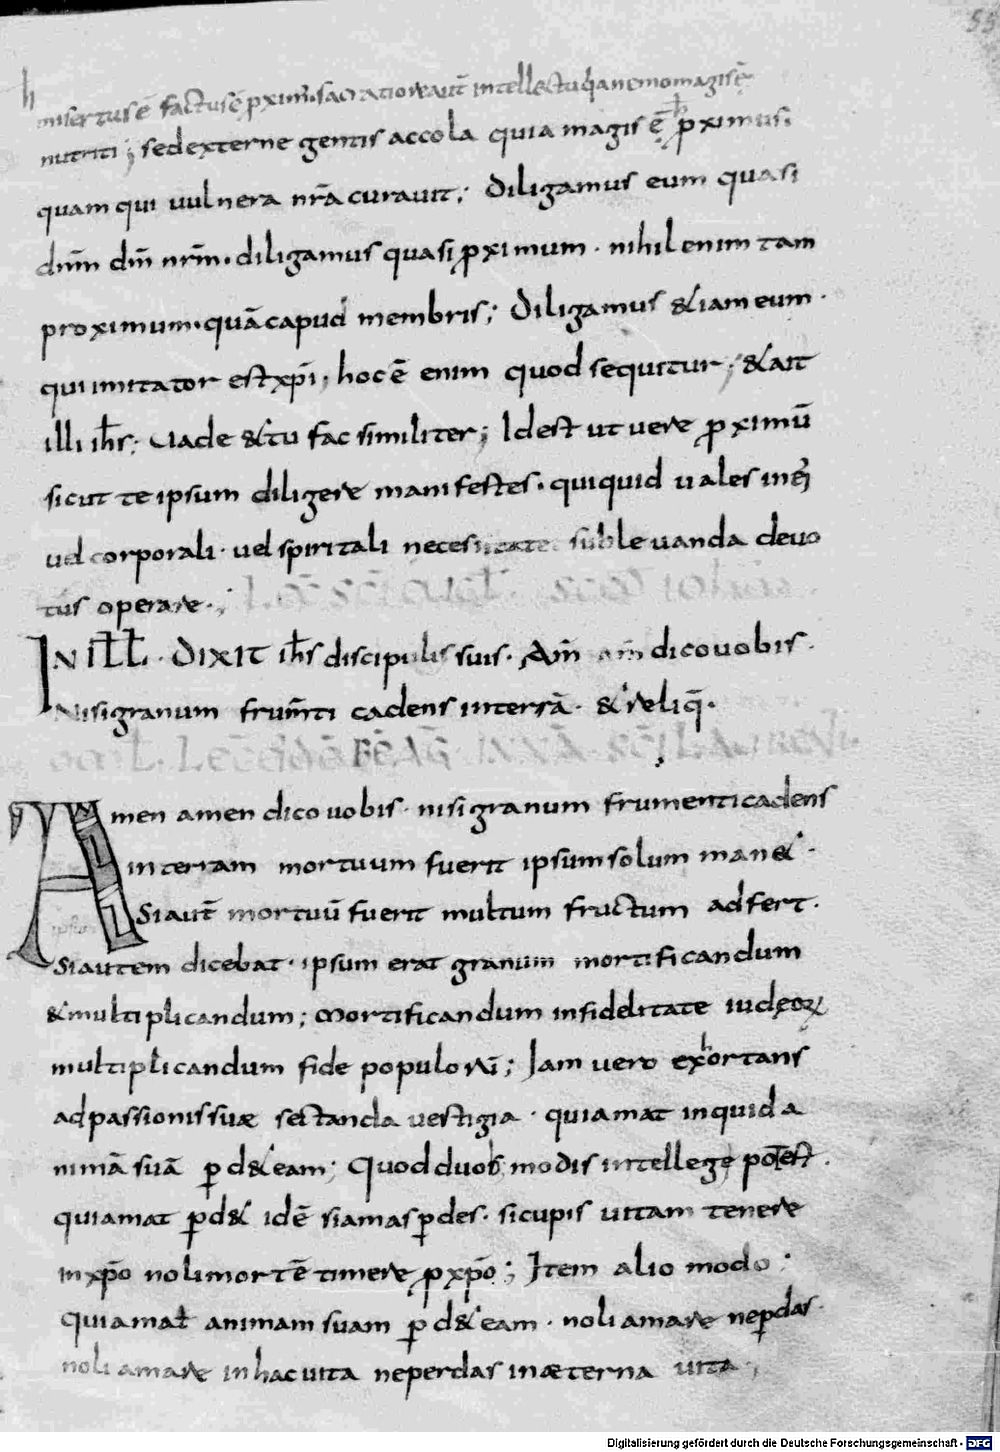 55
h
misertus ē factus ē pximus. sacratiore aut̄ intellectu quia nemo magis ē
nutriti; sed externe gentis accola quia magis ē pximus.
quam qui uulnera nr̄a curauit; diligamus eum quasi
dnm̄ dm̄ nrm̄. diligamus quasi pximum. nihil enim tam
proximum. quā capud membris; diligamus &iam eum.
qui imitator est xp̄i; hoc ē enim quod sequitur; & ait
illi ih̄s; Uade & tu fac similiter; Idest ut uere pximū
sicut te ipsum diligere manifestes. quiquid uales in ei
uel corporali. uel spiritali necessitate subleuanda deuo
tus operare.;
Lc̄ sc̄i eugl̄. scd̄ iohan̄
IN ILL̄. DIXIT ih̄s discipulis suis. Am̄ am̄ dico uobis.
Nisi granum frum̄ti cadens in terrā. & reliq̄.
Amen amen dico uobis. nisi granum frumenti cadens
in terram mortuum fuerit ipsum solum man&.
Si aut̄ mortuū fuerit multum fructum adfert.
Si autem dicebat. ipsum erat granum mortificandum
& multiplicandum; mortificandum infidelitate iudęoꝝ
multiplicandum fide populoꝝ; Iam uero exhortans
ad passionis suæ sectanda uestigia. qui amat inquid a
nimā suā ꝑd& eam; Quod duob; modis intellegi potest.
qui amat ꝑd& idē si amas ꝑdes. si cupis uitam tenere
in xp̄o noli mortē timere ꝓ xp̄o; Item alio modo;
qui amat animam suam ꝑd& eam. noli amare ne ꝑdas.
noli amare in hac uita ne perdas in æterna uita.;
Digitalisierung gefördert durch die Deutsche Forschungsgemeinschaft - DFG